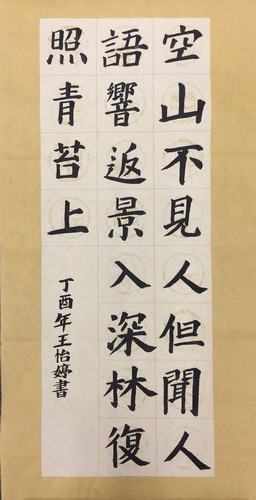 空山不見人但聞人
語響返景入深林復
照青苔上
丁酉年王怡婷書